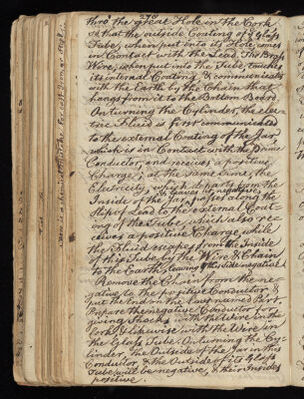 270
thro' the great Hole in the Cork
so that the outside Coating of ye Glass
Tube, when put into its Hole, comes
in Contact with the Lead. The Brass
Wire, when put into the Tube, touches
its internal Coating & communicates
with the Earth by the Chain that
hangs from it to the Bottom Board.
On turning the Cylinder, the elec-
tric Fluid is first communicated
to the external Coating of the Jar
which is in Contact with the Prime
Conductor, and receives a positive
Charge; at the same time, the
Electricity, which departs from the
Inside of the Jar, passes along the
slip of Lead to the external Coat-
ing of the Tube which also re-
ceives a positive Charge, while
the Fluid escapes from the Inside
of this Tube by the Wire & Chain
to the Earth, leaving this side negative.
Remove the Chain from the ne-
gative to the positive Conductor &
put the End in the last named Part.
Prepare the negative Conductor for
giving shocks with the Wire in the
Cork & likewise with the Wire in
the Glass Tube. On turning the Cy-
linder, the Outside of the Jar in this
Conductor & the Outside of its Glass
Tube will be negative, & their Insides
positive.